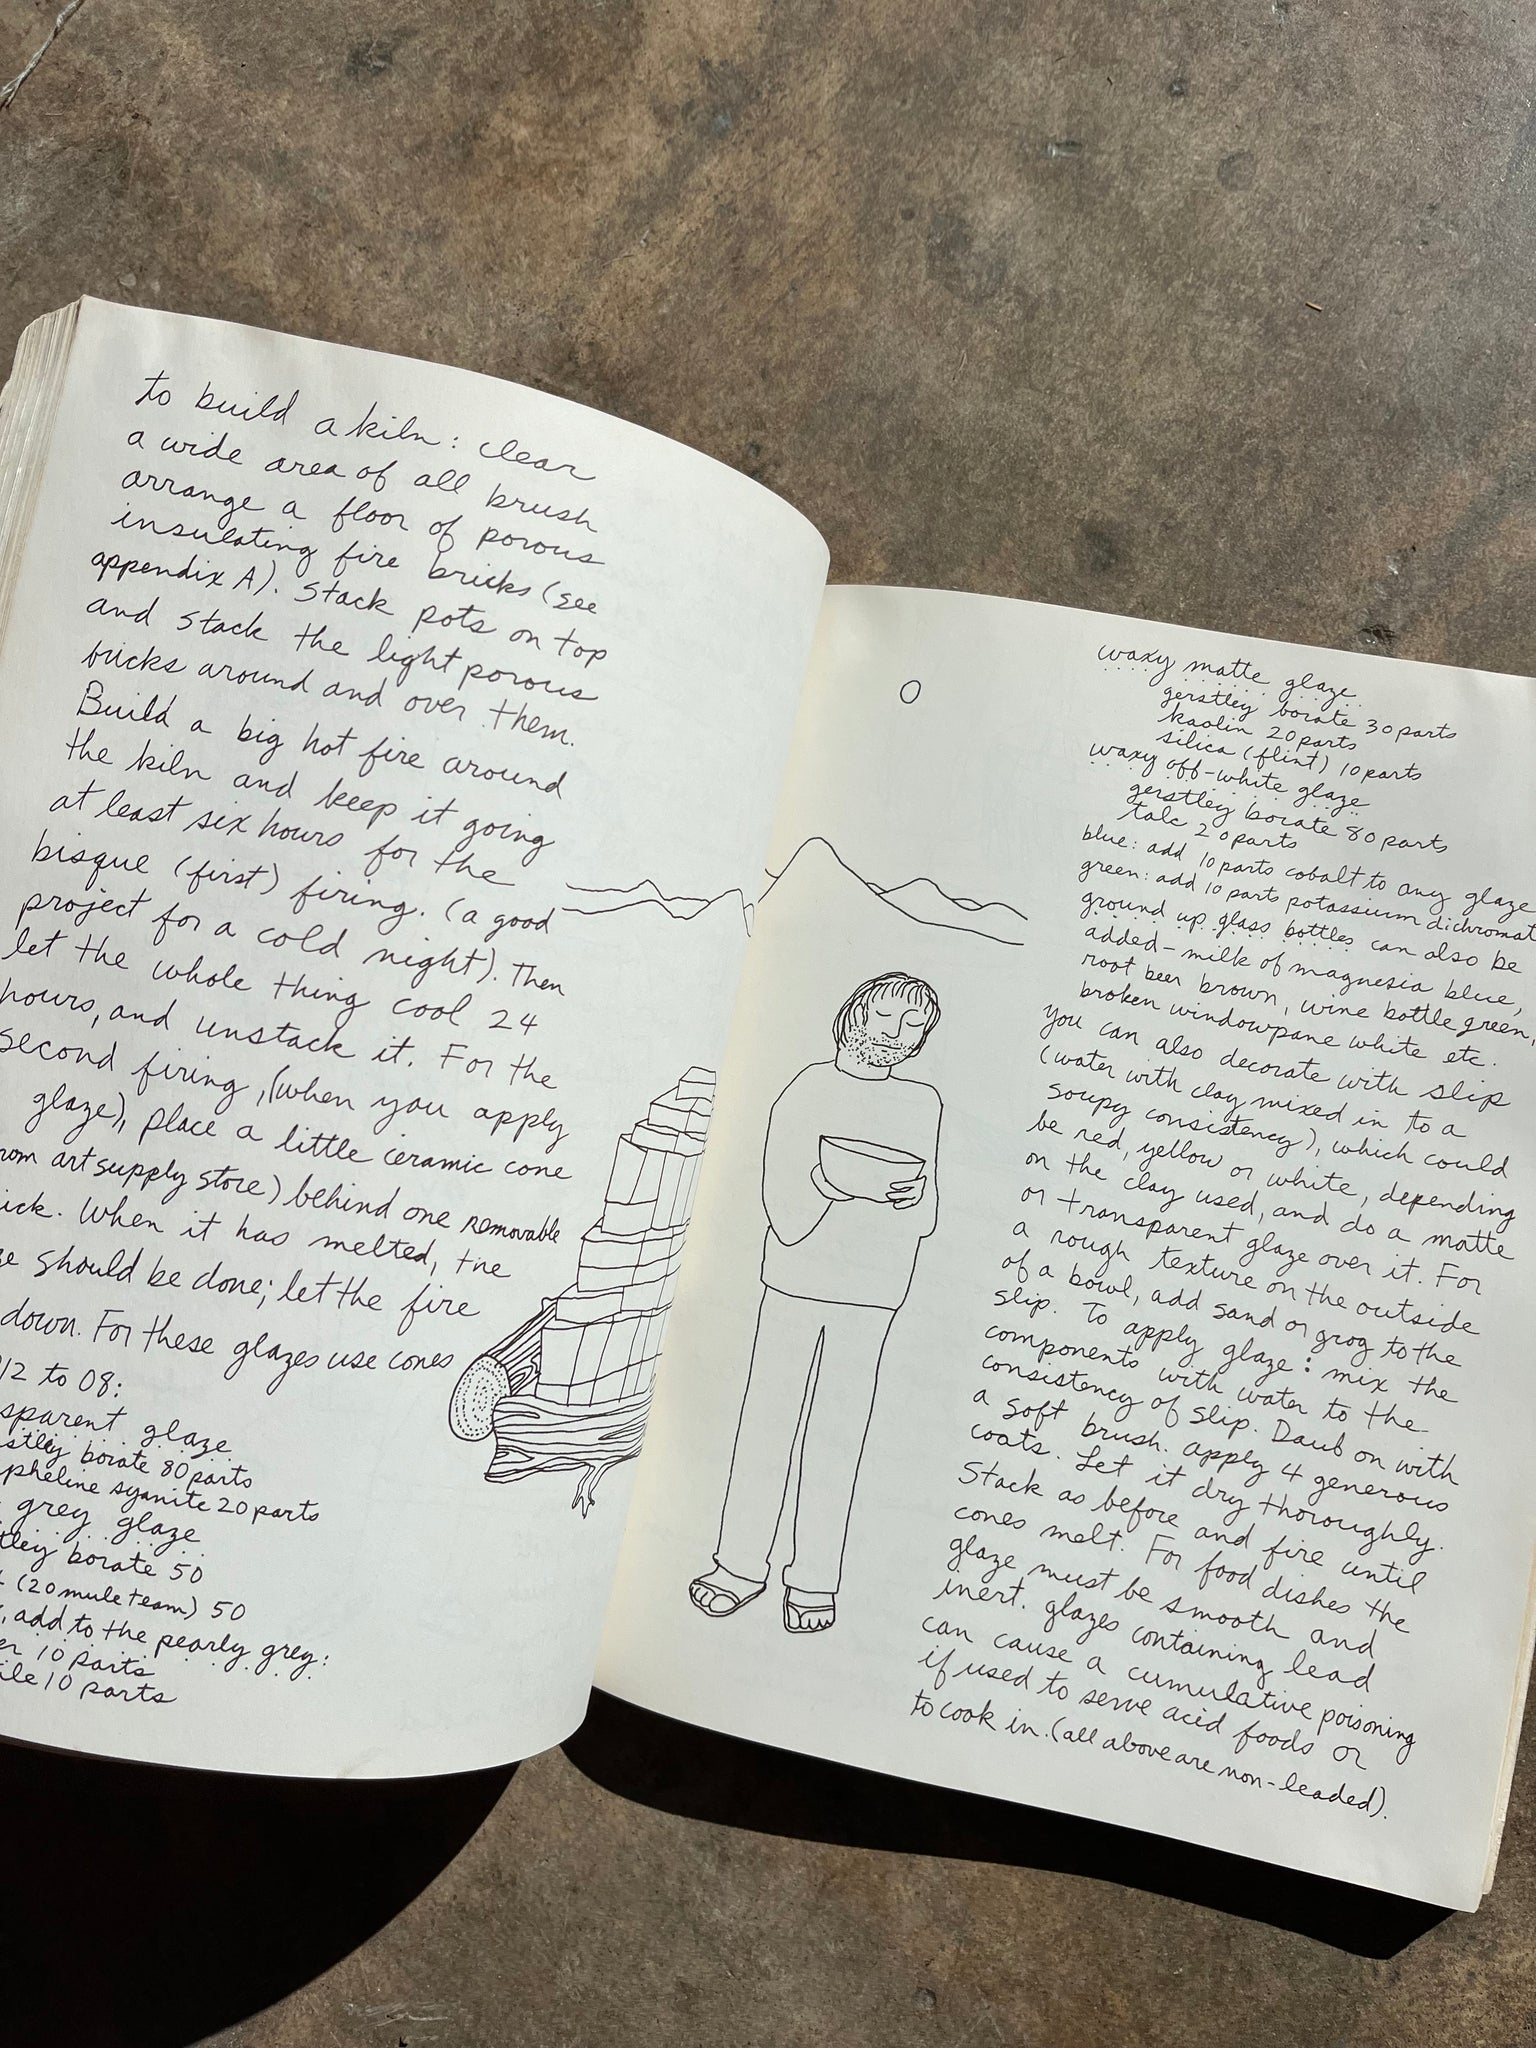 to build a kiln: clear
a wide area of all brush
arrange a floor of porous
insulating fire bricks (see
appendix A). Stack pots on top
and stack the light porous
bricks around and over them.
Build a big hot fire around
the kiln and keep it going
at least six hours for the
bisque (first) firing. (a good
project for a cold night). Then
let the whole thing cool 24
hours, and unstack it. For the
second firing, (when you apply
glaze), place a little ceramic cone
rom art supply store) behind one removable
ick. When it has melted, the
ze should be done; let the fire
down. For these glazes use cones
012 to 08:
sparent glaze
stley borate 80 parts
pheline syanite 20 parts
grey glaze
tley borate 50
(20 mule team) 50
, add to the pearly grey:
er 10 parts
ile 10 parts
waxy matte glaze
gerstley borate 30 parts
kaolin 20 parts
silica (flint) 10 parts
waxy off-white glaze
gerstley borate 80 parts
talc 20 parts
blue: add 10 parts cobalt to any glaze
green: add 10 parts potassium dichromat
ground up glass bottles can also be
added - milk of magnesia blue,
root beer brown, wine bottle green,
broken windowpane white etc.
you can also decorate with slip
(water with clay mixed in to a
soupy consistency), which could
be red, yellow or white, depending
on the clay used, and do a matte
or transparent glaze over it. For
a rough texture on the outside
of a bowl, add sand or grog to the
slip. To apply glaze: mix the
components with water to the
consistency of slip. Daub on with
a soft brush. apply 4 generous
coats. Let it dry thoroughly.
Stack as before and fire until
cones melt. For food dishes the
glaze must be smooth and
inert. glazes containing lead
can cause a cumulative poisoning
if used to serve acid foods or
to cook in. (all above are non-leaded).